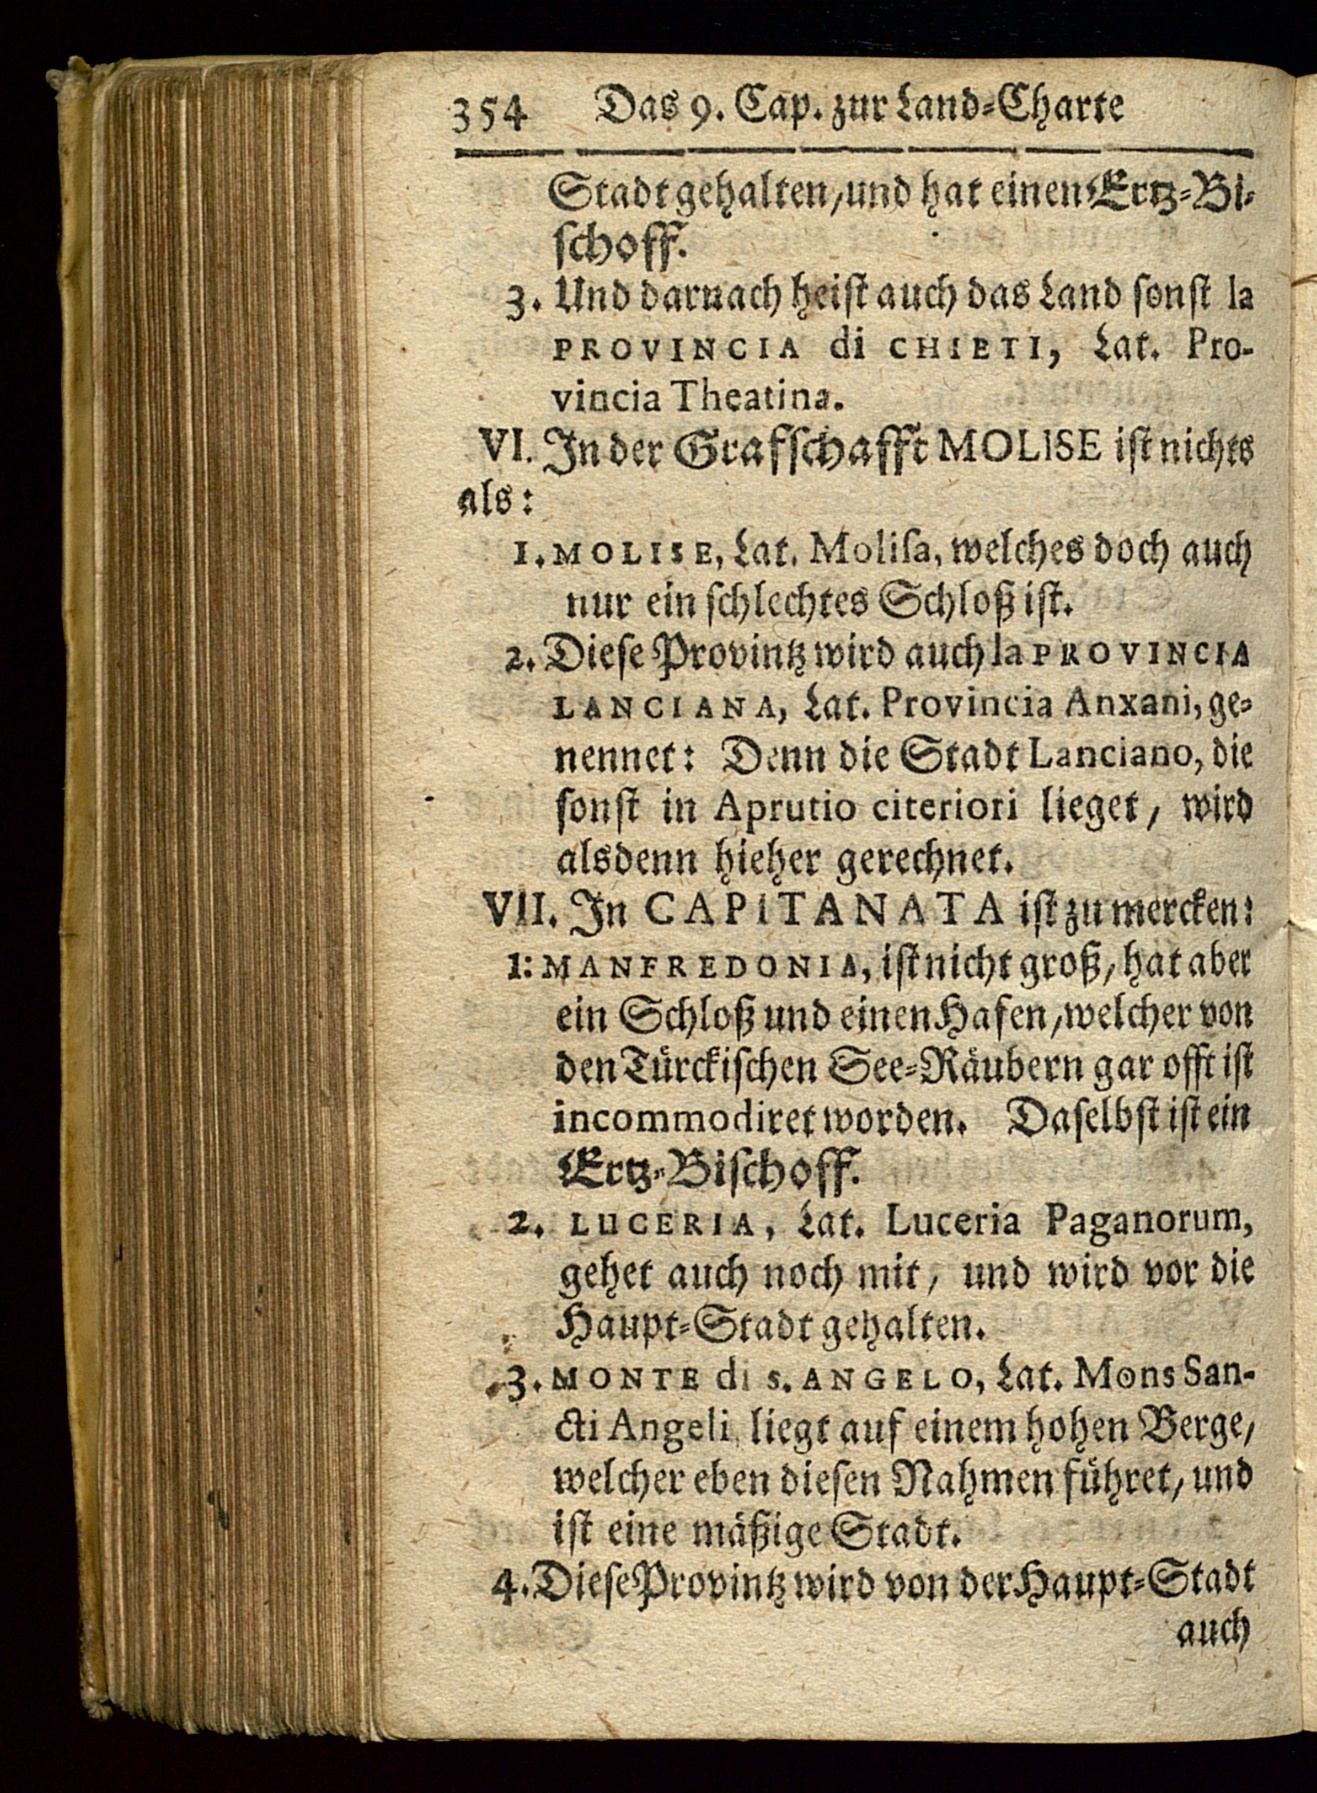 354 Das 9. Cap. zur Land-Charte
Stadt gehalten, und hat einen Ertz-Bi-
schoff.
3. Und darnach heist auch das Land sonst la
PROVINCIA di CHIETI, Lat. Pro-
vincia Theatina.
VI. In der Grafschafft MOLISE ist nichts
als:
1. MOLISE, Lat. Molisa, welches doch auch
nur ein schlechtes Schloß ist.
2. Diese Provintz wird auch la PROVINCIA
LANCIANA, Lat. Provincia Anxani, ge-
nennet: Denn die Stadt Lanciano, die
sonst in Aprutio citeriori lieget, wird
alsdenn hieher gerechnet.
VII. In CAPITANATA ist zu mercken:
1: MANFREDONIA, ist nicht groß, hat aber
ein Schloß und einen Hafen, welcher von
den Türckischen See-Räubern gar offt ist
incommodiret worden. Daselbst ist ein
Ertz-Bischoff.
2. LUCERIA, Lat. Luceria Paganorum,
gehet auch noch mit, und wird vor die
Haupt-Stadt gehalten.
3. MONTE di S. ANGELO, Lat. Mons San-
cti Angeli, liegt auf einem hohen Berge,
welcher eben diesen Nahmen führet, und
ist eine mäßige Stadt.
4. Diese Provintz wird von der Haupt-Stadt
auch